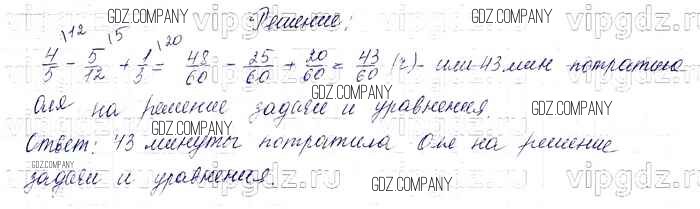 Решение:
4/5 \12 - 5/12 \5 + 1/3 \20 = 48/60 - 25/60 + 20/60 = 43/60 (ч) - или 43 мин потратила
Оля на решение задачи и уравнения.
Ответ: 43 минуты потратила Оля на решение
задачи и уравнения.
GDZ.COMPANY
GDZ.COMPANY
GDZ.COMPANY
GDZ.COMPANY
GDZ.COMPANY
GDZ.COMPANY
GDZ.COMPANY
GDZ.COMPANY
vipgdz.ru
vipgdz.ru
vipgdz.ru
vipgdz.ru